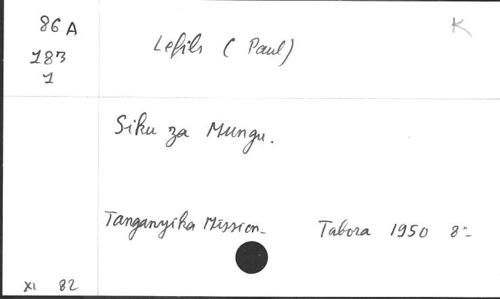 86 A
K
183
1
Lefils (Paul)
Siku za Mungu.
Tanganyika Mission_
Tabora 1950 8°_
XI 82